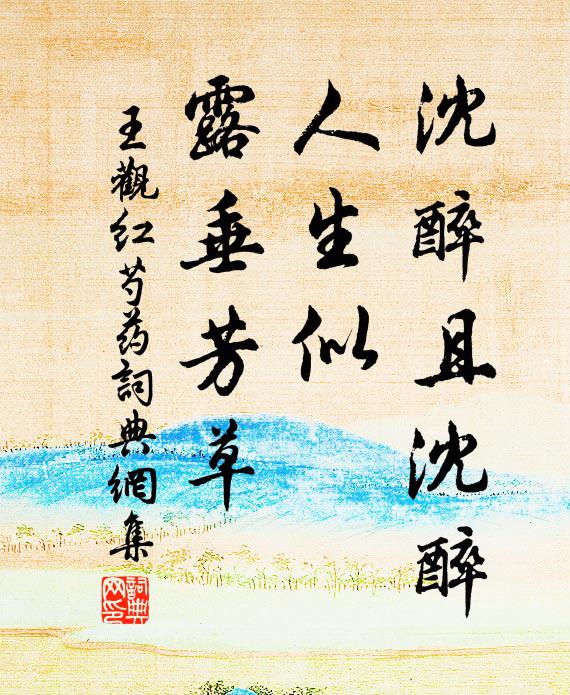 沈醉且沈醉
人生似
露垂芳草
王觀红芍药詞典網集
詞典网印